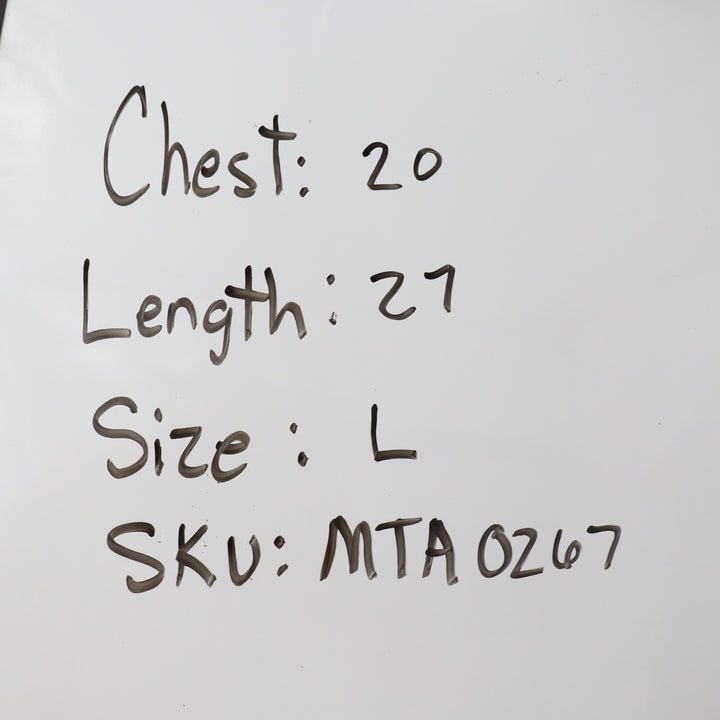 Chest: 20
Length: 27
Size: L
SKU: MTA 0267